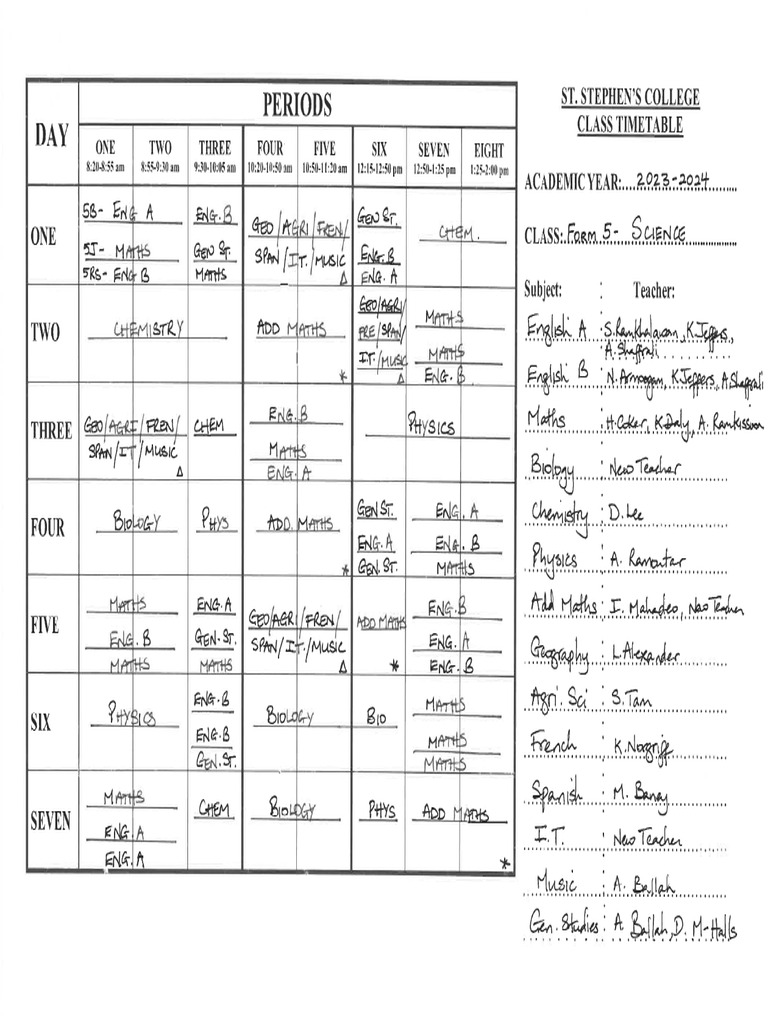 ST. STEPHEN'S COLLEGE
CLASS TIMETABLE
ACADEMIC YEAR:....2023-2024
CLASS: FORM 5- SCIENCE
DAY
PERIODS
ONE TWO THREE FOUR FIVE SIX SEVEN EIGHT
8:20-8:55 am 8:55-9:30 am 9:30-10:05 am 10:20-10:50 am 10:50-11:20 am 12:15-12:50 pm 12:50-1:25 pm 1:25-2:00 pm
ONE
5S- ENG A ENG.B GEO/AGRI/FREN/ GEN ST. CHEM.
5J- MATHS GEN ST SPAN/IT./MUSIC ENG.B
5RS- ENG B MATHS Δ ENG. A
TWO
CHEMISTRY ADD MATHS GEO/AGRI/ MATHS
FRE/SPAN/ MATHS
* I.T/MUSIC Δ ENG. B
THREE
GEO/AGRI/FREN/ CHEM ENG.B PHYSICS
SPAN/IT/MUSIC MATHS
Δ ENG. A
FOUR
BIOLOGY PHYS ADD. MATHS GEN ST. ENG. A
ENG. A ENG. B
* GEN. ST. MATHS
FIVE
MATHS ENG. A GEO/AGRI/FREN/ ADD MATHS ENG.B
ENG. B GEN. ST. SPAN/IT./MUSIC ENG. A
MATHS MATHS Δ * ENG. B
SIX
PHYSICS ENG.B BIOLOGY BIO MATHS
ENG.B MATHS
GEN. ST. MATHS
SEVEN
MATHS CHEM BIOLOGY PHYS ADD MATHS
ENG. A
ENG. A *
Subject: : Teacher:
English A : S. Ramkhalawan, K Jeffers,
A. Shaffrali
English B : N. Armoogam, K Jeffers, A Shaffrali
Maths : H. Coker, K Daly, A. Ramkissoon
Biology : New Teacher
Chemistry : D. Lee
Physics : A. Ramoutar
Add Maths : I. Mahadeo, New Teacher
Geography : L. Alexander
Agri. Sci : S. Tam
French : K. Norgriff
Spanish : M. Banay
I.T. : New Teacher
Music : A. Ballah
Gen. Studies : A Ballah, D. M-Halls